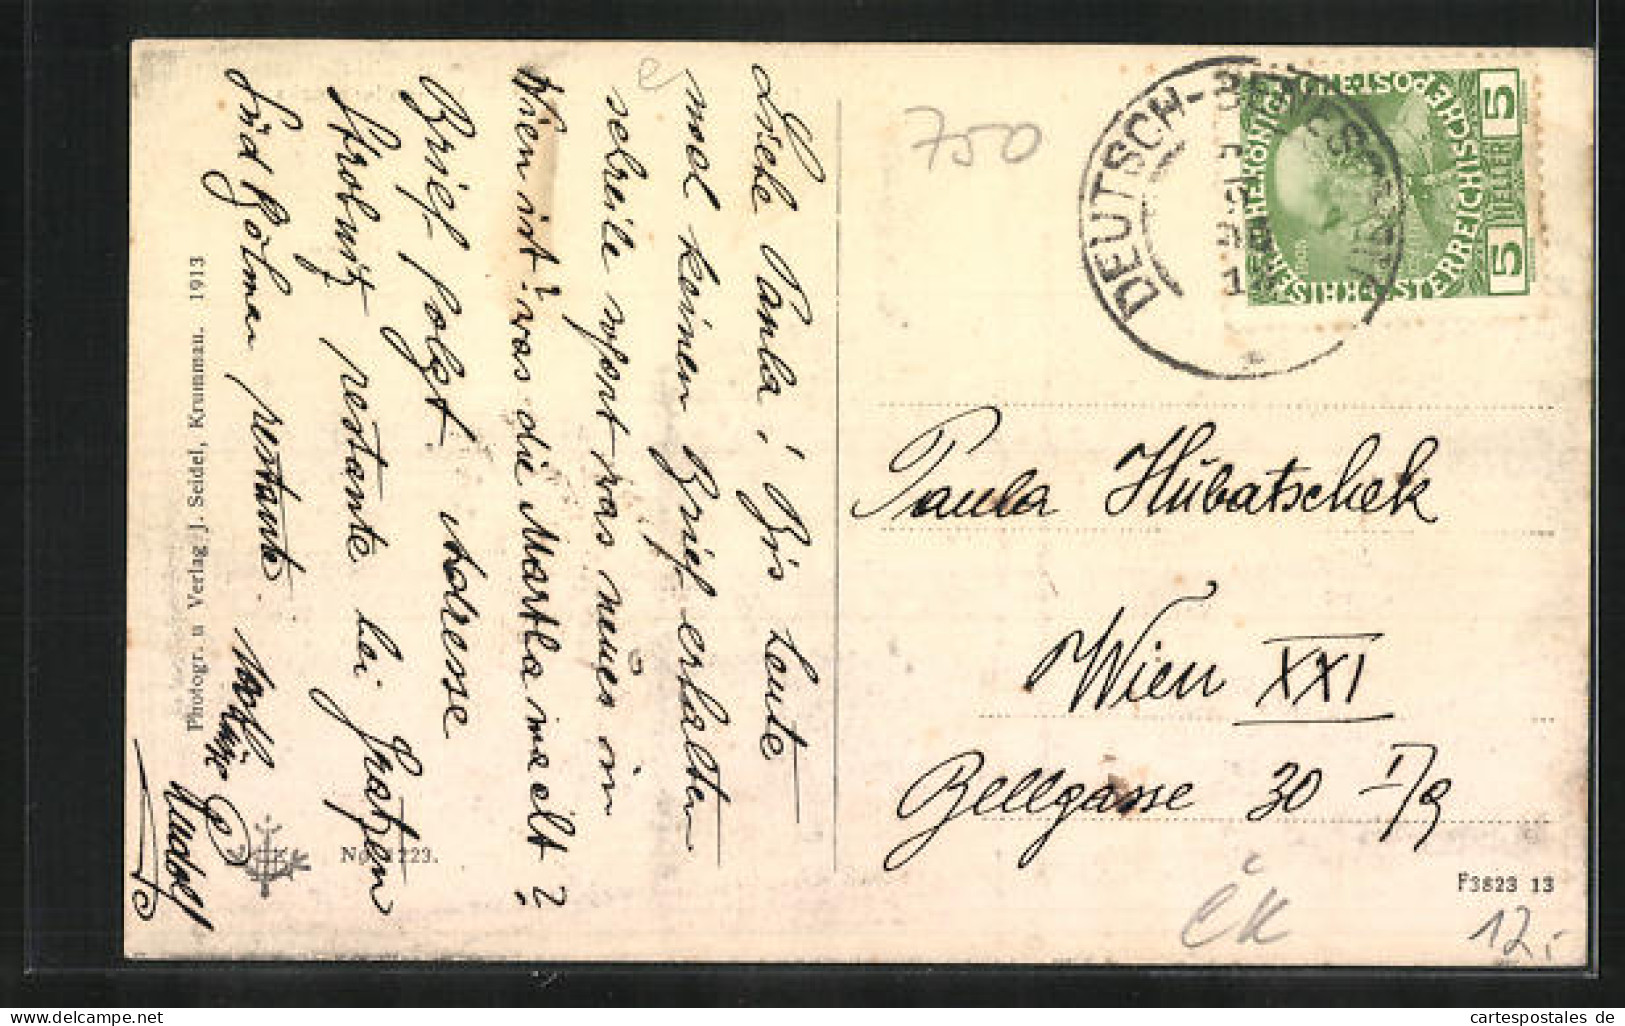 Liebe Paula! Bis heute
mal keinen Brief erhalten
schreibe sofort was neues in
Wien ist! was die Martha macht?
Brief folgt. Adresse
Strobnitz restante bei Gratzen
Süd Böhmen restante.
Rudolf
Photogr. u Verlag J. Seidel, Krummau. 1913
223.
750
DEUTSCH-BENES
KAISERL. KÖNIGLICHE ÖSTERREICHISCHE POST
5 HELLER 5
Paula Hubatschek
Wien XXI
Bellgasse 30 I/9
F3823 13
ČK
12,-
cartespostales de